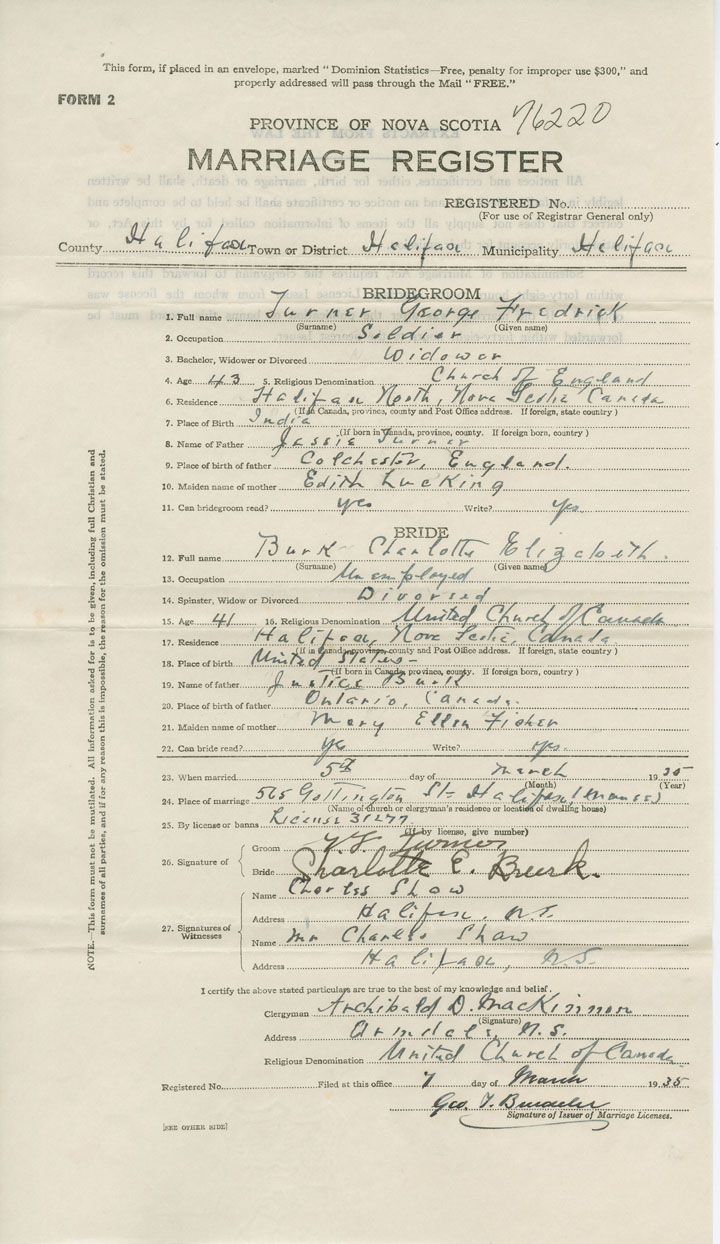 This form, if placed in an envelope, marked "Dominion Statistics—Free, penalty for improper use $300," and
properly addressed will pass through the Mail "FREE."
FORM 2
PROVINCE OF NOVA SCOTIA 76220
MARRIAGE REGISTER
REGISTERED No.
(For use of Registrar General only)
County Halifax Town or District Halifax Municipality Halifax
BRIDEGROOM
1. Full name Turner George Fredrick
(Surname) (Given name)
2. Occupation Soldier
3. Bachelor, Widower or Divorced Widower
4. Age 43 5. Religious Denomination Church of England
6. Residence Halifax North, Nova Scotia Canada
(If in Canada, province, county and Post Office address. If foreign, state country)
7. Place of Birth India
(If born in Canada, province, county. If foreign born, country)
8. Name of Father Jessie Turner
9. Place of birth of father Colchester, England.
10. Maiden name of mother Edith Lucking
11. Can bridegroom read? yes Write? yes
BRIDE
12. Full name Burk Charlotte Elizabeth.
(Surname) (Given name)
13. Occupation Unemployed
14. Spinster, Widow or Divorced Divorsed
15. Age 41 16. Religious Denomination United Church of Canada
17. Residence Halifax, Nova Scotia, Canada
(If in Canada, province, county and Post Office address. If foreign, state country)
18. Place of birth United States-
(If born in Canada, province, county. If foreign born, country)
19. Name of father Justice Burk
20. Place of birth of father Ontario, Canada.
21. Maiden name of mother Mary Ellen Fisher
22. Can bride read? yes Write? yes.
23. When married 5th day of March 1935
(Month) (Year)
24. Place of marriage 565 Gottington St- Halifax (Manse)
(Name of church or clergyman's residence or location of dwelling house)
25. By license or banns License 31277
(If by license, give number)
26. Signature of
Groom Turner
Bride Charlotte E. Burk.
27. Signatures of Witnesses
Name Charles Shaw
Address Halifax, N.S.
Name Mr Charles Shaw
Address Halifax, N.S.
I certify the above stated particulars are true to the best of my knowledge and belief.
Clergyman Archibald D. MacKinnon
(Signature)
Address N.S.
Religious Denomination United Church of Canada
Registered No. Filed at this office 7 day of March 1935
Geo. T.
Signature of Issuer of Marriage Licenses.
[SEE OTHER SIDE]
NOTE.—This form must not be mutilated. All information asked for is to be given, including full Christian and
surnames of all parties, and if for any reason this is impossible, the reason for the omission must be stated.